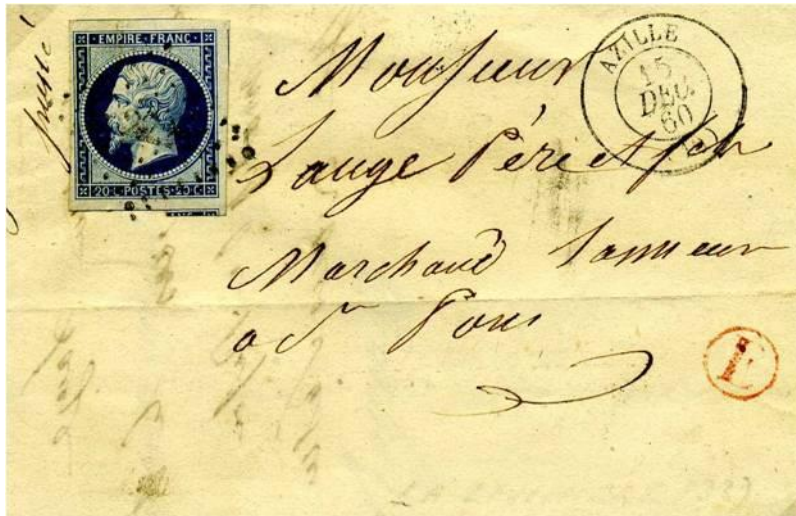 EMPIRE · FRANC
20 · C · POSTES · 20 · C
AZILLE
15
DEC.
60
Monsieur
Lauge Père et fils
Marchand Tanneur
a St Pons
E